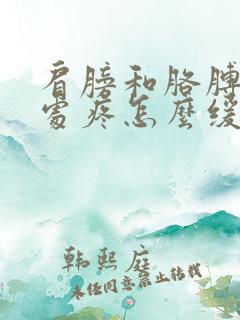 肩膀和胳膊
处疼怎麼缓
韩熙庭
未经同意禁止转载